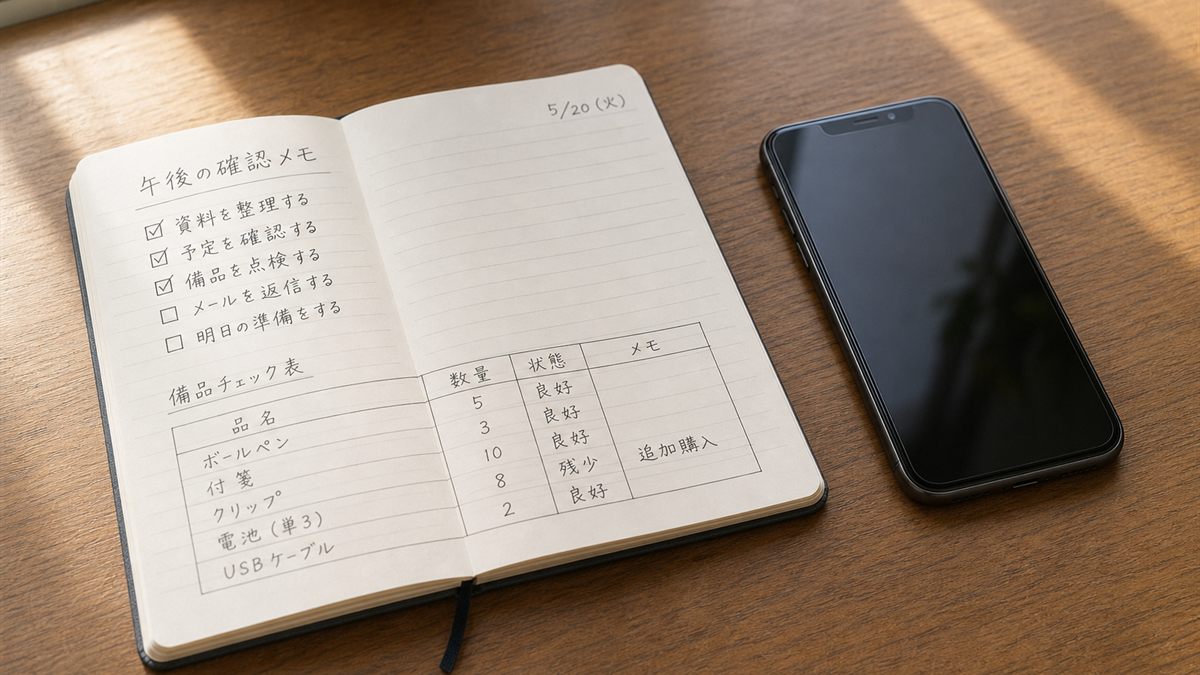 午後の確認メモ
☑ 資料を整理する
☑ 予定を確認する
☑ 備品を点検する
☐ メールを返信する
☐ 明日の準備をする
5/20(火)
備品チェック表
品名 数量 状態 メモ
ボールペン 5 良好
付箋 3 良好
クリップ 10 良好
電池(単3) 8 残少 追加購入
USBケーブル 2 良好